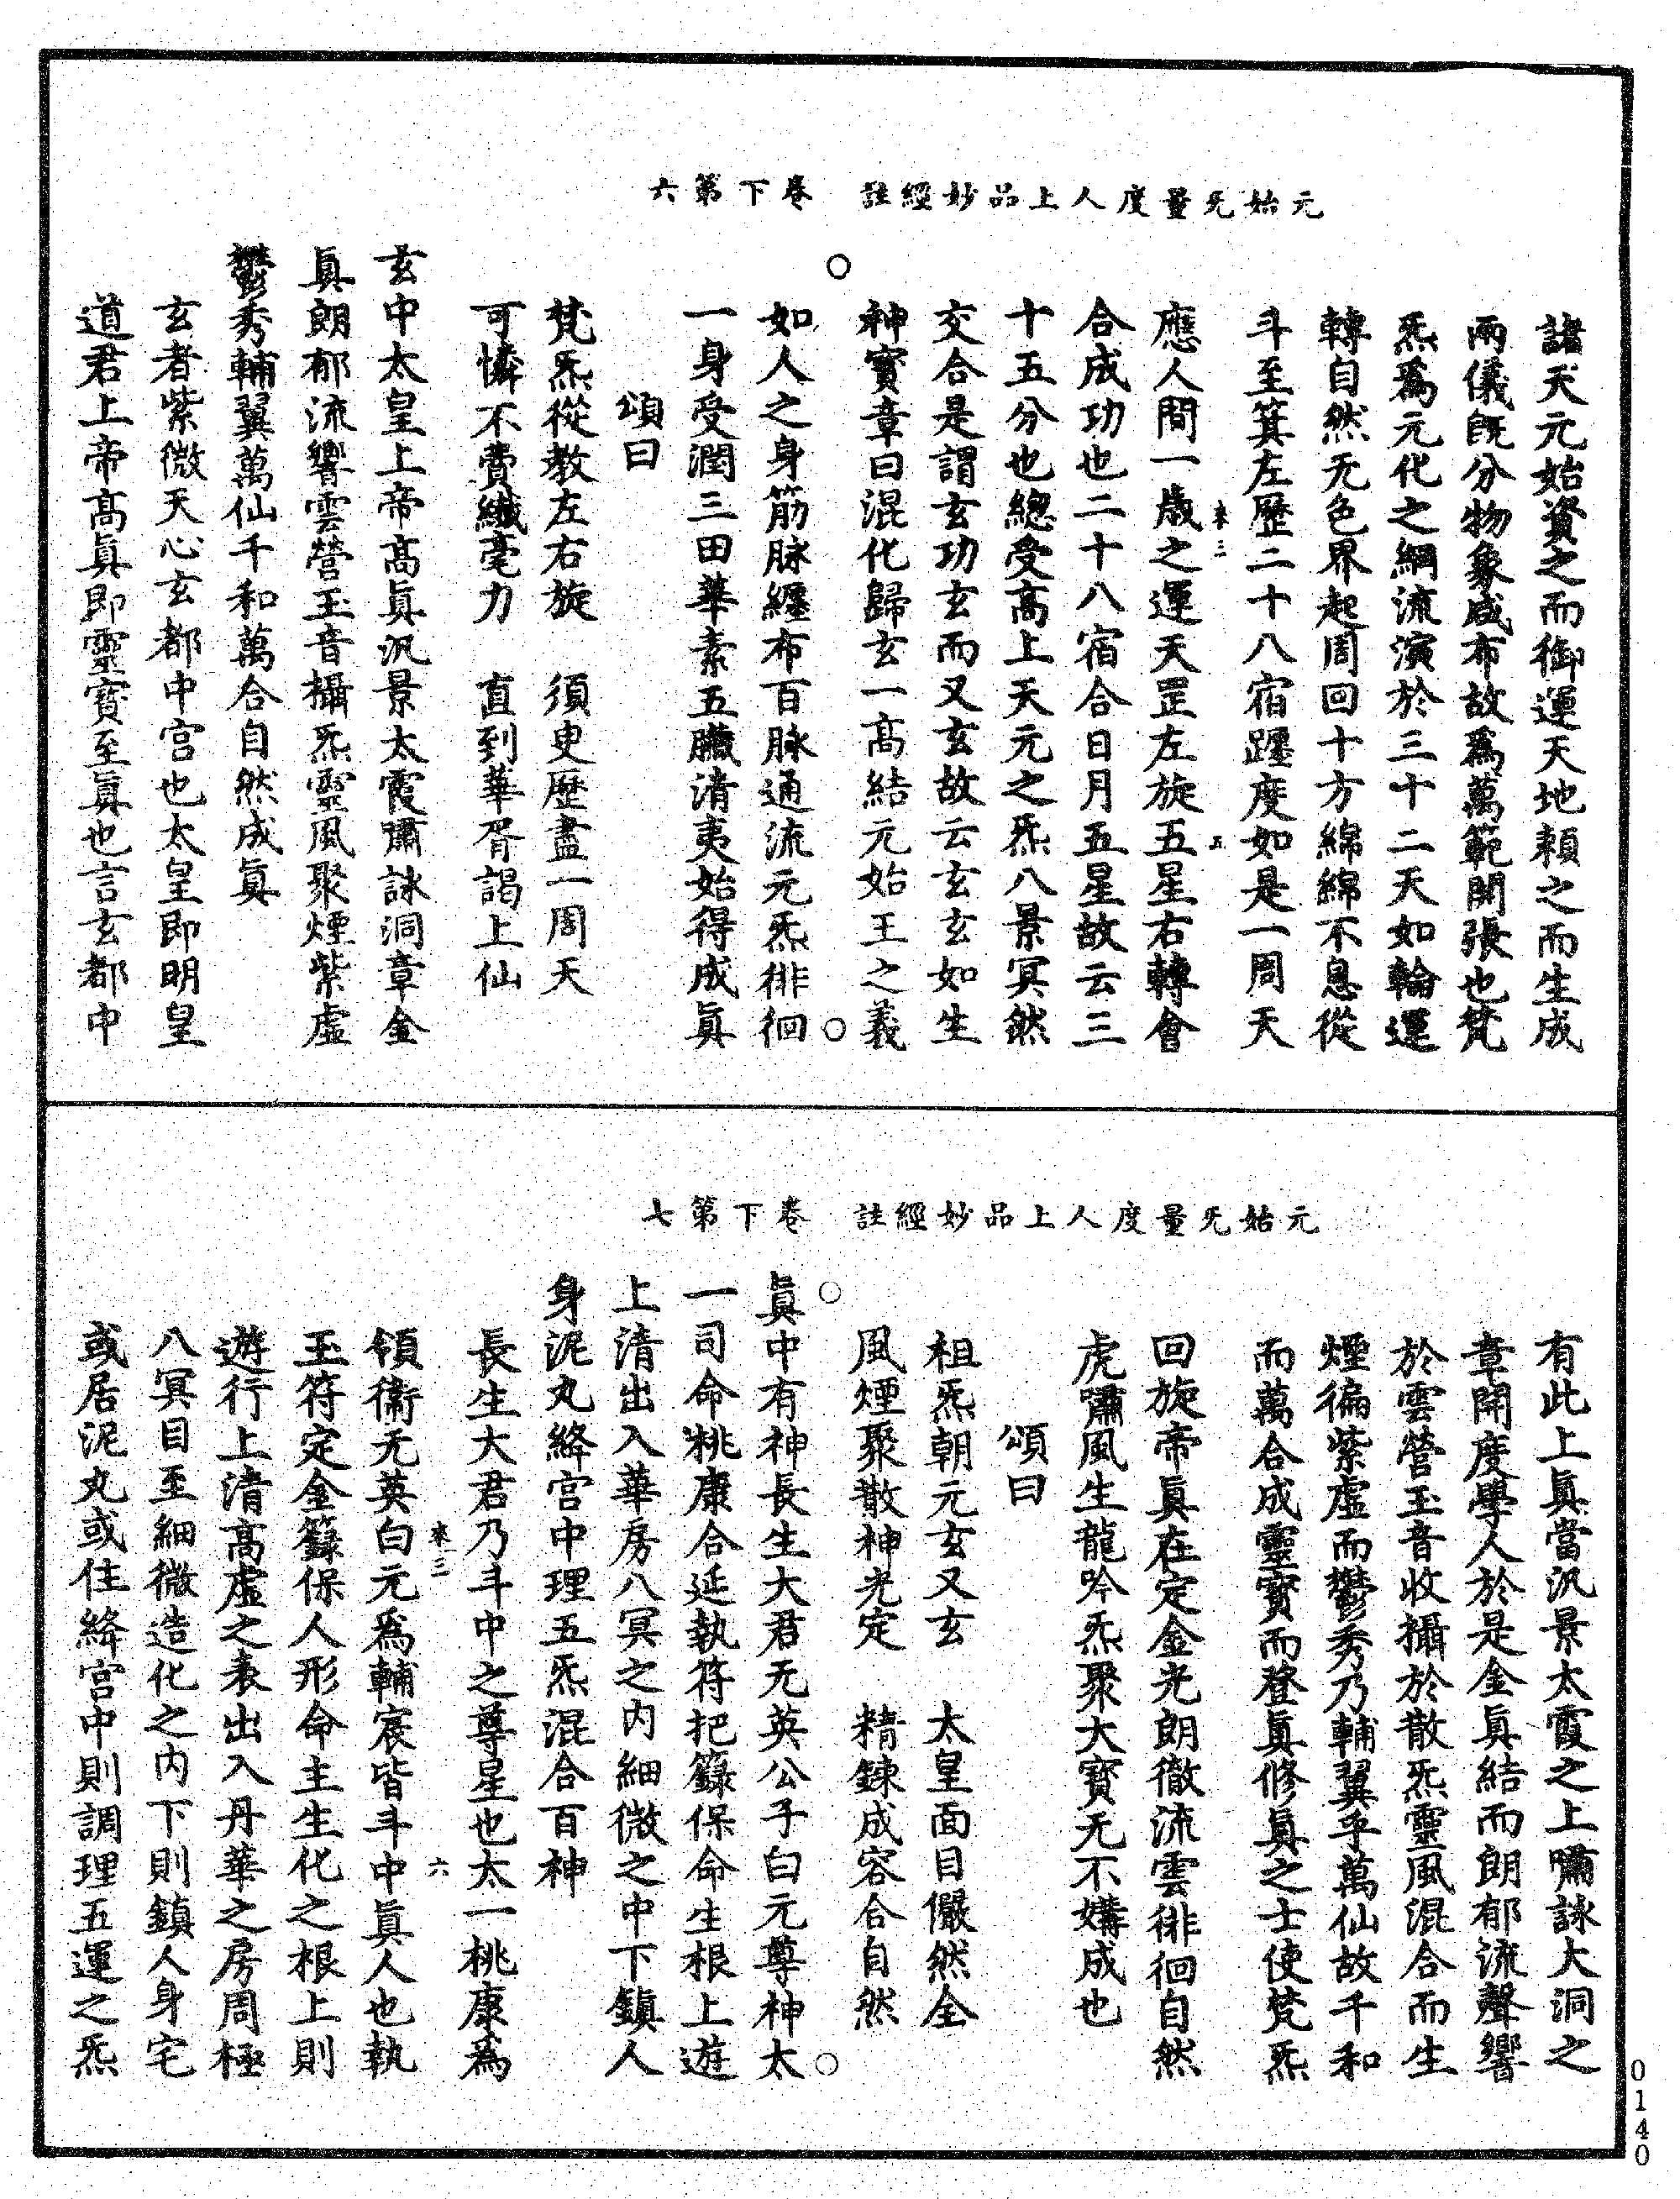 元始旡量度人上品妙經註　卷下第六
諸天元始資之而御運天地賴之而生成
兩儀旣分物象咸布故爲萬範開張也梵
炁爲元化之綱流演於三十二天如輪運
轉自然无色界起周回十方綿綿不息從
斗至箕左歷二十八宿躔度如是一周天
來三　五
應人間一歲之運天罡左旋五星右轉會
合成功也二十八宿合日月五星故云三
十五分也總受高上天元之炁八景冥然
交合是謂玄功玄而又玄故云玄玄如生
神寶章曰混化歸玄一高結元始王之義
如人之身筋脉纏布百脉通流元炁徘徊
一身受潤三田華素五臟清夷始得成眞
頌曰
梵炁從教左右旋　須臾歷盡一周天
可憐不費纖毫力　直到華胥謁上仙
玄中太皇上帝高眞汎景太霞嘯詠洞章金
眞朗郁流響雲營玉音攝炁靈風聚煙紫虛
鬱秀輔翼萬仙千和萬合自然成眞
玄者紫微天心玄都中宮也太皇即明皇
道君上帝高眞即靈寶至眞也言玄都中
元始旡量度人上品妙經註　卷下第七
有此上眞當汎景太霞之上嘯詠大洞之
章開度學人於是金眞結而朗郁流聲響
於雲營玉音收攝於散炁靈風混合而生
煙徧紫虛而鬱秀乃輔翼乎萬仙故千和
而萬合成靈寶而登眞修眞之士使梵炁
回旋帝眞在定金光朗徹流雲徘徊自然
虎嘯風生龍吟炁聚大寶无不媾成也
頌曰
祖炁朝元玄又玄　太皇面目儼然全
風煙聚散神光定　精鍊成容合自然
眞中有神長生大君无英公子白元尊神太
一司命桃康合延執符把籙保命生根上遊
上清出入華房八冥之內細微之中下鎮人
身泥丸絳宮中理五炁混合百神
長生大君乃斗中之尊星也太一桃康爲
來三　六
領衛无英白元爲輔宸皆斗中眞人也執
玉符定金籙保人形命主生化之根上則
遊行上清高虛之表出入丹華之房周極
八冥目至細微造化之內下則鎮人身宅
或居泥丸或住絳宮中則調理五運之炁
0140